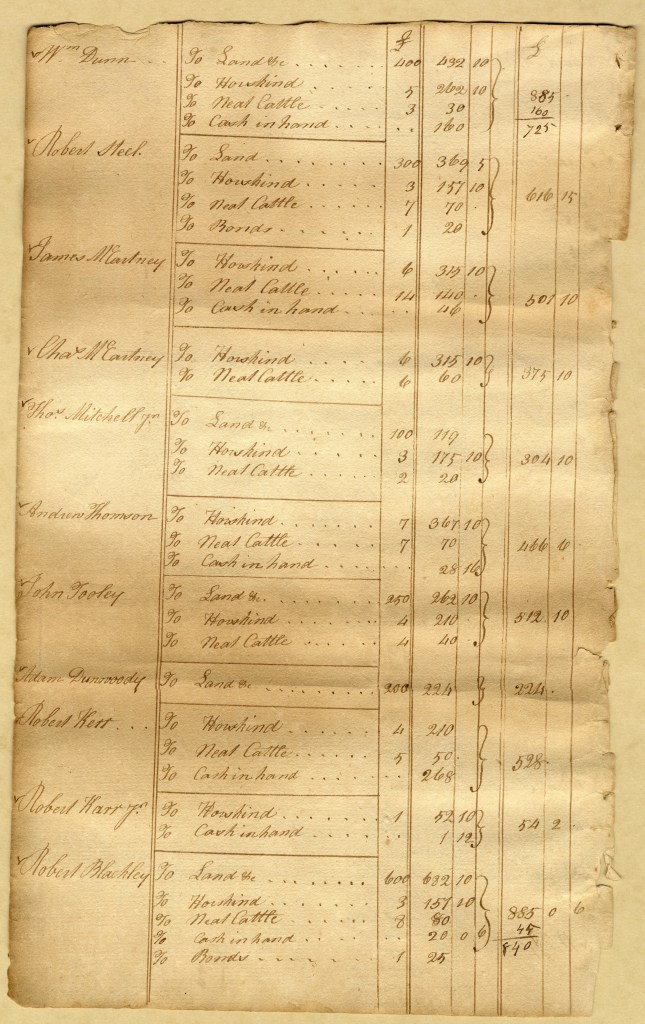 £ £
Wm Dunn . . To Land &c . . . . . . 400 432 10
To Horskind . . . . . . 5 262 10
To Neat Cattle . . . . . 3 30 885
To Cash in hand . . . . . . 160 160
725
Robert Steel. To Land . . . . . . . . 300 369 5
To Horskind . . . . . . 3 157 10 616 15
To Neat Cattle . . . . . 7 70
To Bonds . . . . . . . 1 20
James McCartney To Horskind . . . . . . 6 315 10
To Neat Cattle . . . . . 14 140 501 10
To Cash in hand . . . . . 46
Chas McCartney To Horskind . . . . . . 6 315 10
To Neat Cattle . . . . . 6 60 375 10
Thos Mitchell Jr To Land &c . . . . . . 100 119
To Horskind . . . . . . 3 175 10 304 10
To Neat Cattle . . . . . 2 20
Andrew Thomson To Horskind . . . . . . 7 367 10
To Neat Cattle . . . . . 7 70 466 6
To Cash in hand . . . . . 28 16
John Tooley To Land &c . . . . . . 250 262 10
To Horskind . . . . . . 4 210 512 10
To Neat Cattle . . . . . 4 40
Adam Dunwoody To Land &c . . . . . . 200 224 224
Robert Kerr . . . To Horskind . . . . . . 4 210
To Neat Cattle . . . . . 5 50 528
To Cash in hand . . . . . 268
Robert Karr Jr To Horskind . . . . . . 1 52 10
To Cash in hand . . . . . 1 12 54 2
Robert Blackley To Land &c . . . . . . 600 632 10
To Horskind . . . . . . 3 157 10
To Neat Cattle . . . . . 8 80 885 0 6
To Cash in hand . . . . . 20 0 6 45
To Bonds . . . . . . . 1 25 840